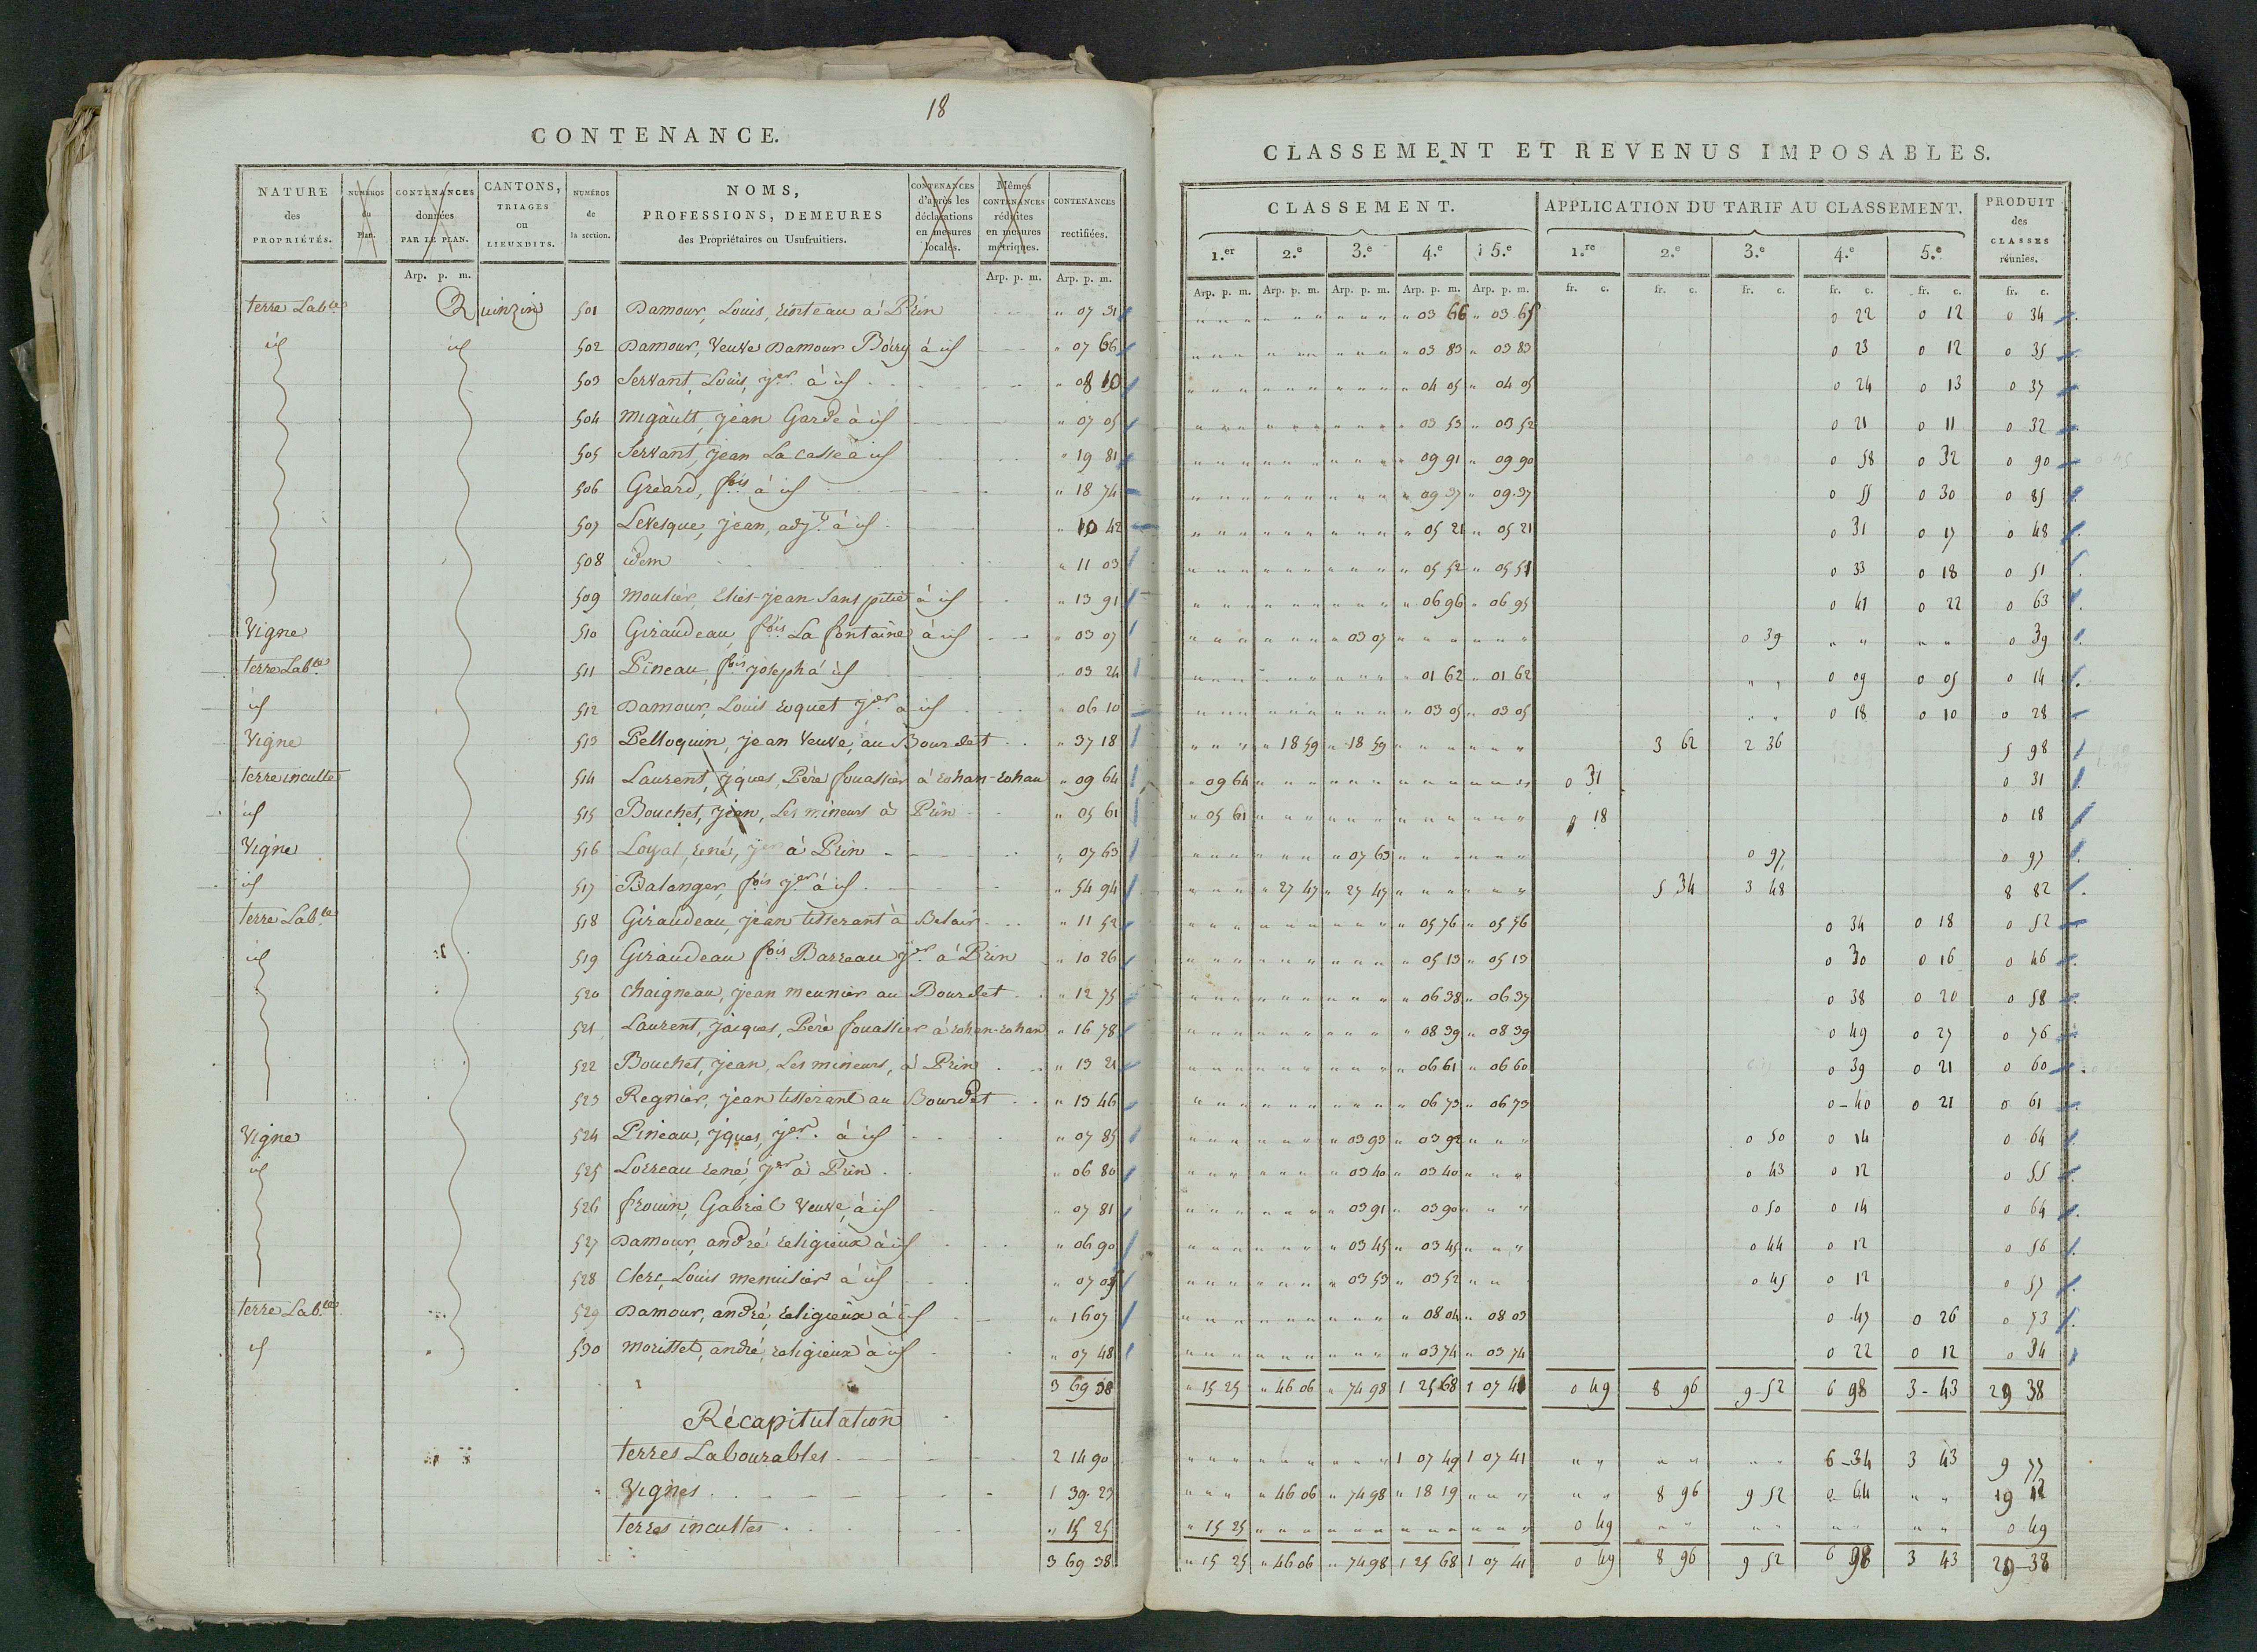 18
CONTENANCE.
NATURE des PROPRIÉTÉS. | NUMÉROS du Plan. | CONTENANCES données PAR LE PLAN. | CANTONS, TRIAGES ou LIEUXDITS. | NUMÉROS de la section. | NOMS, PROFESSIONS, DEMEURES des Propriétaires ou Usufruitiers. | CONTENANCES d'après les déclarations en mesures locales. | Mêmes CONTENANCES réduites en mesures métriques. | CONTENANCES rectifiées.
Arp. p. m. | Arp. p. m. | Arp. p. m.
terre Lab.le Quinzin 501 Damour, Louis, à Prin " 07 31
id id 502 Damour, Veuve Damour Boiry à id " 07 66
503 Servant, Louis, j.er à id " 08 10
504 Migault, jean Garde à id " 07 05
505 Servant, jean La casse à id " 19 81
506 Gréard, f.ois à id " 18 74
507 Levesque, jean, adj.t à id " 10 42
508 idem " 11 03
509 Moulier, Elies-jean Sans pitié à id " 13 91
Vigne 510 Giraudeau, f.ois La fontaine à id " 03 07
terre Lab.le 511 Pineau, f.ois joseph à id " 03 24
id 512 Damour, Louis roquet j.er à id " 06 10
Vigne 513 Pelloquin, jean Veuve, au Bourdet " 37 18
terre inculte 514 Laurent, jques, Père fouassier à rohan-rohan " 09 64
id 515 Bouchet, jean, Les mineurs à Prin " 05 61
Vigne 516 Loyal, rené, j.er à Prin " 07 63
id 517 Balanger, f.ois j.er à id " 54 94
terre Lab.le 518 Giraudeau, jean tisserant à Belair " 11 52
id 519 Giraudeau f.ois Barreau j.er à Prin " 10 26
520 Chaigneau, jean meunier au Bourdet " 12 75
521 Laurent, jacques, Père fouassier à rohan-rohan " 16 78
522 Bouchet, jean, Les mineurs, à Prin " 13 21
523 Regnier, jean tisserant au Bourdet " 13 46
Vigne 524 Pineau, jques, j.er à id " 07 85
id 525 Lorreau rené, j.er à Prin " 06 80
526 frouin, Gabriel Veuve, à id " 07 81
527 Damour, andré religieux à id " 06 90
528 Clerc, Louis menuisier à id " 07 05
terre Lab.le 529 Damour, andré, religieux à id " 16 07
id 530 Morisset, andré, religieux à id " 07 48
3 69 38
Récapitulation
terres Labourables 2 14 90
Vignes 1 39 23
terres incultes " 15 25
3 69 38
CLASSEMENT ET REVENUS IMPOSABLES.
CLASSEMENT. | APPLICATION DU TARIF AU CLASSEMENT. | PRODUIT des CLASSES réunies.
1.er | 2.e | 3.e | 4.e | 5.e | 1.re | 2.e | 3.e | 4.e | 5.e
Arp. p. m. | Arp. p. m. | Arp. p. m. | Arp. p. m. | Arp. p. m. | fr. c. | fr. c. | fr. c. | fr. c. | fr. c. | fr. c.
" 03 66 " 03 65 0 22 0 12 0 34
" 03 83 " 03 83 0 23 0 12 0 35
" 04 05 " 04 05 0 24 0 13 0 37
" 03 53 " 03 52 0 21 0 11 0 32
" 09 91 " 09 90 0 58 0 32 0 90
" 09 37 " 09 37 0 55 0 30 0 85
" 05 21 " 05 21 0 31 0 17 0 48
" 05 52 " 05 51 0 33 0 18 0 51
" 06 96 " 06 95 0 41 0 22 0 63
" 03 07 " " " " " " 0 39 " " " " 0 39
" 01 62 " 01 62 " " 0 09 0 05 0 14
" 03 05 " 03 05 " " 0 18 0 10 0 28
" 18 59 " 18 59 " " " " " " 3 62 2 36 5 98
" 09 64 0 31 0 31
" 05 61 0 18 0 18
" 07 63 0 97 0 97
" 27 47 " 27 47 5 34 3 48 8 82
" 05 76 " 05 76 0 34 0 18 0 52
" 05 13 " 05 13 0 30 0 16 0 46
" 06 38 " 06 37 0 38 0 20 0 58
" 08 39 " 08 39 0 49 0 27 0 76
" 06 61 " 06 60 0 39 0 21 0 60
" 06 73 " 06 73 0 40 0 21 0 61
" 03 93 " 03 92 " " " 0 50 0 14 0 64
" 03 40 " 03 40 " " " 0 43 0 12 0 55
" 03 91 " 03 90 " " " 0 50 0 14 0 64
" 03 45 " 03 45 " " " 0 44 0 12 0 56
" 03 53 " 03 52 " " 0 45 0 12 0 57
" 08 04 " 08 03 0 47 0 26 0 73
" 03 74 " 03 74 0 22 0 12 0 34
" 15 25 " 46 06 " 74 98 1 25 68 1 07 41 0 49 8 96 9 52 6 98 3 43 29 38
1 07 49 1 07 41 " " " " " " 6 34 3 43 9 77
" " " " 46 06 " 74 98 " 18 19 " " " " " 8 96 9 52 0 64 " " 19 12
" 15 25 0 49 " " " " " " " " 0 49
" 15 25 " 46 06 " 74 98 1 25 68 1 07 41 0 49 8 96 9 52 6 98 3 43 29 38